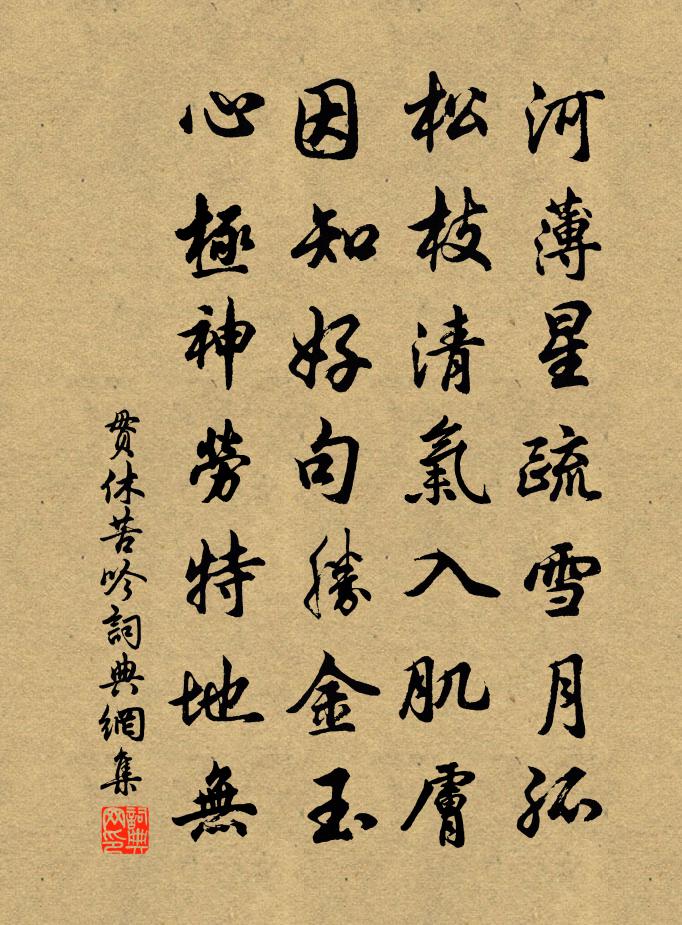 河薄星疏雪月孤
松枝清氣入肌膚
因知好句勝金玉
心極神勞特地無
貫休苦吟詞典網集
詞典網印